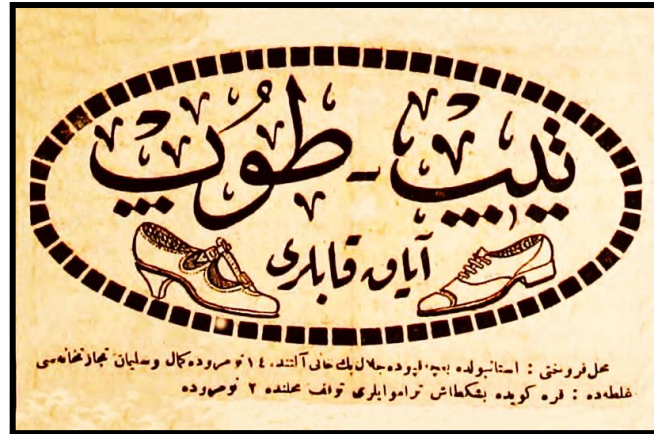 تیپ - طوپ
آیاق قابلری
محل فروختی : استانبولده بهچه قپوده جلال بك خانی آلتنده ١٤ نومروده کمال و سلیمان تجارتخانه سی
غلطه ده : قره کویده بشکطاش تراموایلری توقف محلنده ٢ نومروده